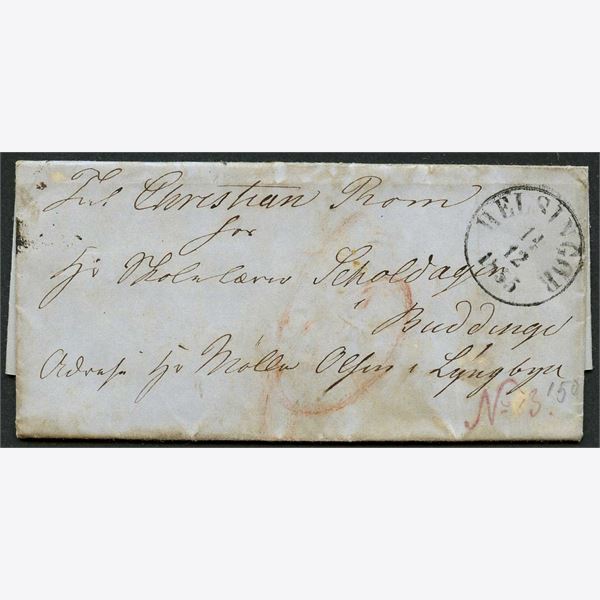 Til Christian Rom
for
Hr Skolelærer Scholdager
i Buddinge
Adrese Hr Møller Olsen i Lyngbye
HELSINGÖR
12
1855
No 13.
150